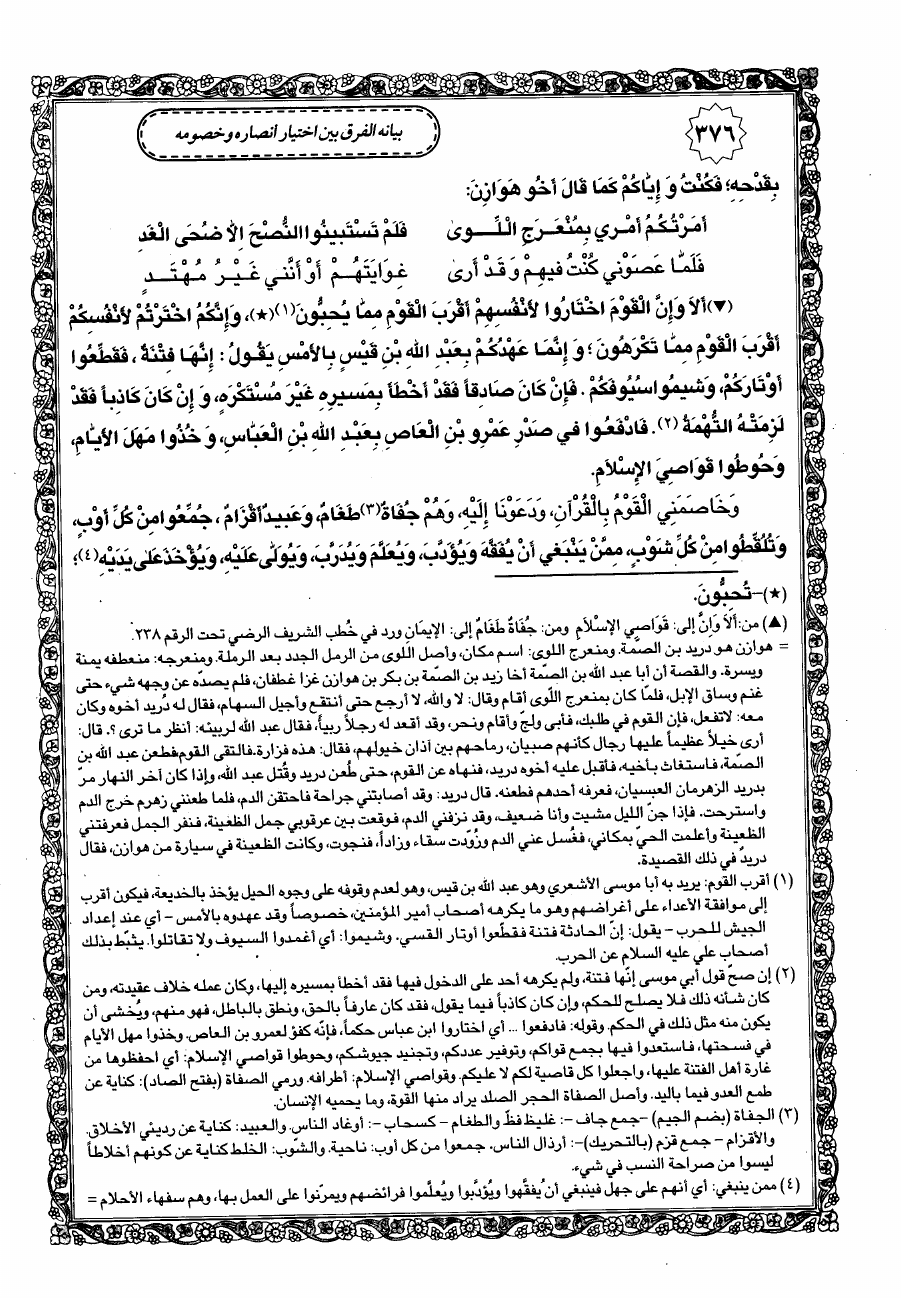 ٣٧٦
بيانه الفرق بين اختيار أنصاره وخصومه
بِقِدْحِهِ؛ فَكُنْتُ وَ إِيَّاكُمْ كَمَا قَالَ أَخُو هَوَازِنَ:
أَمَرْتُكُمُ أَمْري بِمُنْعَرَجِ الْلِّـــوىٰ    فَلَمْ تَسْتَبينُوا النُّصْحَ إِلاَّ ضُحَى الْغَدِ
فَلَمَّا عَصَوْني كُنْتُ فيهِمْ وَ قَدْ أَرىٰ    غِوَايَتَهُمْ أَوْ أَنَّني غَيْرُ مُهْتَدٍ
(▼) أَلاَ وَإِنَّ الْقَوْمَ اخْتَارُوا لأَنْفُسِهِمْ أَقْرَبَ الْقَوْمِ مِمَّا يُحِبُّونَ(١)(★)، وَإِنَّكُمُ اخْتَرْتُمْ لأَنْفُسِكُمْ
أَقْرَبَ الْقَوْمِ مِمَّا تَكْرَهُونَ؛ وَ إِنَّمَا عَهْدُكُمْ بِعَبْدِ اللهِ بْنِ قَيْسٍ بِالأَمْسِ يَقُولُ: إِنَّهَا فِتْنَةٌ، فَقَطِّعُوا
أَوْتَارَكُمْ، وَشيمُوا سُيُوفَكُمْ. فَإِنْ كَانَ صَادِقاً فَقَدْ أَخْطَأَ بِمَسيرِهِ غَيْرَ مُسْتَكْرَهٍ، وَ إِنْ كَانَ كَاذِباً فَقَدْ
لَزِمَتْهُ التُّهْمَةُ(٢). فَادْفَعُوا في صَدْرِ عَمْرِو بْنِ الْعَاصِ بِعَبْدِ اللهِ بْنِ الْعَبَّاسِ، وَ خُذُوا مَهَلَ الأَيَّامِ،
وَحُوطُوا قَوَاصِيَ الإِسْلاَمِ.
وَخَاصَمَنِي الْقَوْمُ بِالْقُرْآنِ، وَدَعَوْنَا إِلَيْهِ، وَهُمْ جُفَاةٌ(٣) طَغَامٌ، وَعَبيدٌ أَقْزَامٌ، جُمِّعُوا مِنْ كُلِّ أَوْبٍ،
وَتُلُقِّطُوا مِنْ كُلِّ شَوْبٍ، مِمَّنْ يَنْبَغي أَنْ يُفَقَّهَ وَيُؤَدَّبَ، وَيُعَلَّمَ وَيُدَرَّبَ، وَيُوَلّىٰ عَلَيْهِ، وَيُؤْخَذَ عَلىٰ يَدَيْهِ(٤)؛
(★)-تُحِبُّونَ.
(▲) من: أَلاَ وَإِنَّ إلى: قَوَاصِي الإِسْلاَمِ ومن: جُفَاةٌ طَغَامٌ إلى: الإيمَانِ ورد في خُطب الشريف الرضي تحت الرقم ٢٣٨.
= هوازن هو دريد بن الصمّة. ومنعرج اللوى: اسم مكان، وأصل اللوى من الرمل الجدد بعد الرملة. ومنعرجه: منعطفه يمنة
ويسرة. والقصة أن أبا عبد الله بن الصمّة أخا زيد بن الصمّة بن بكر بن هوازن غزا غطفان، فلم يصدّه عن وجهه شيء حتى
غنم وساق الإبل، فلمّا كان بمنعرج اللّوى أقام وقال: لا والله، لا أرجع حتى أنتقع وأجيل السهام، فقال له دُريد أخوه وكان
معه: لاتفعل، فإن القوم في طلبك، فأبى ولجّ وأقام ونحر، وقد أقعد له رجلاً ربيأً، فقال عبد الله لربيئه: أنظر ما ترى؟. قال:
أرى خيلاً عظيماً عليها رجال كأنهم صبيان، رماحهم بين آذان خيولهم، فقال: هذه فزارة. فالتقى القوم فطعن عبد الله بن
الصمّة، فاستغاث بأخيه، فأقبل عليه أخوه دريد، فنهاه عن القوم، حتى طُعن دريد وقُتل عبد الله، وإذا كان آخر النهار مرّ
بدريد الزهرمان العبسيان، فعرفه أحدهم فطعنه. قال دريد: وقد أصابتني جراحة فاحتقن الدم، فلما طعنني زهرم خرج الدم
واسترحت. فإذا جنّ الليل مشيت وأنا ضعيف، وقد نزفني الدم، فوقعت بين عرقوبي جمل الظعينة، فنفر الجمل فعرفتني
الظعينة وأعلمت الحيّ بمكاني، فغُسل عني الدم وزُوّدت سقاء وزاداً، فنجوت، وكانت الظعينة في سيارة من هوازن، فقال
دريدٌ في ذلك القصيدة.
(١) أقرب القوم: يريد به أبا موسى الأشعري وهو عبد الله بن قيس، وهو لعدم وقوفه على وجوه الحيل يؤخذ بالخديعة، فيكون أقرب
إلى موافقة الأعداء على أغراضهم وهو ما يكرهه أصحاب أمير المؤمنين، خصوصاً وقد عهدوه بالأمس - أي عند إعداد
الجيش للحرب - يقول: إنّ الحادثة فتنة فقطّعوا أوتار القسي. وشيموا: أي أغمدوا السيوف ولا تقاتلوا. يثبّط بذلك
أصحاب علي عليه السلام عن الحرب.
(٢) إن صحّ قول أبي موسى إنّها فتنة، ولم يكرهه أحد على الدخول فيها فقد أخطأ بمسيره إليها، وكان عمله خلاف عقيدته، ومن
كان شأنه ذلك فلا يصلح للحكم، وإن كان كاذباً فيما يقول، فقد كان عارفاً بالحق، ونطق بالباطل، فهو منهم، ويُخشى أن
يكون منه مثل ذلك في الحكم. وقوله: فادفعوا ... أي اختاروا ابن عباس حكماً، فإنّه كفؤ لعمرو بن العاص. وخذوا مهل الأيام
في فسحتها، فاستعدوا فيها بجمع قواكم، وتوفير عددكم، وتجنيد جيوشكم، وحوطوا قواصي الإسلام: أي احفظوها من
غارة أهل الفتنة عليها، واجعلوا كل قاصية لكم لا عليكم. وقواصي الإسلام: أطرافه. ورمي الصفاة (بفتح الصاد): كناية عن
طمع العدو فيما باليد. وأصل الصفاة الحجر الصلد يراد منها القوة، وما يحميه الإنسان.
(٣) الجفاة (بضم الجيم) -جمع جاف -: غليظ فظّ والطغام - كسحاب -: أوغاد الناس. والعبيد: كناية عن رديئي الأخلاق.
والأقزام - جمع قزم (بالتحريك)-: أرذال الناس. جمعوا من كل أوب: ناحية. والشّوب: الخلط كناية عن كونهم أخلاطاً
ليسوا من صراحة النسب في شيء.
(٤) ممن ينبغي: أي أنهم على جهل فينبغي أن يُفقّهوا ويُؤدّبوا ويُعلّموا فرائضهم ويمرّنوا على العمل بها، وهم سفهاء الأحلام =